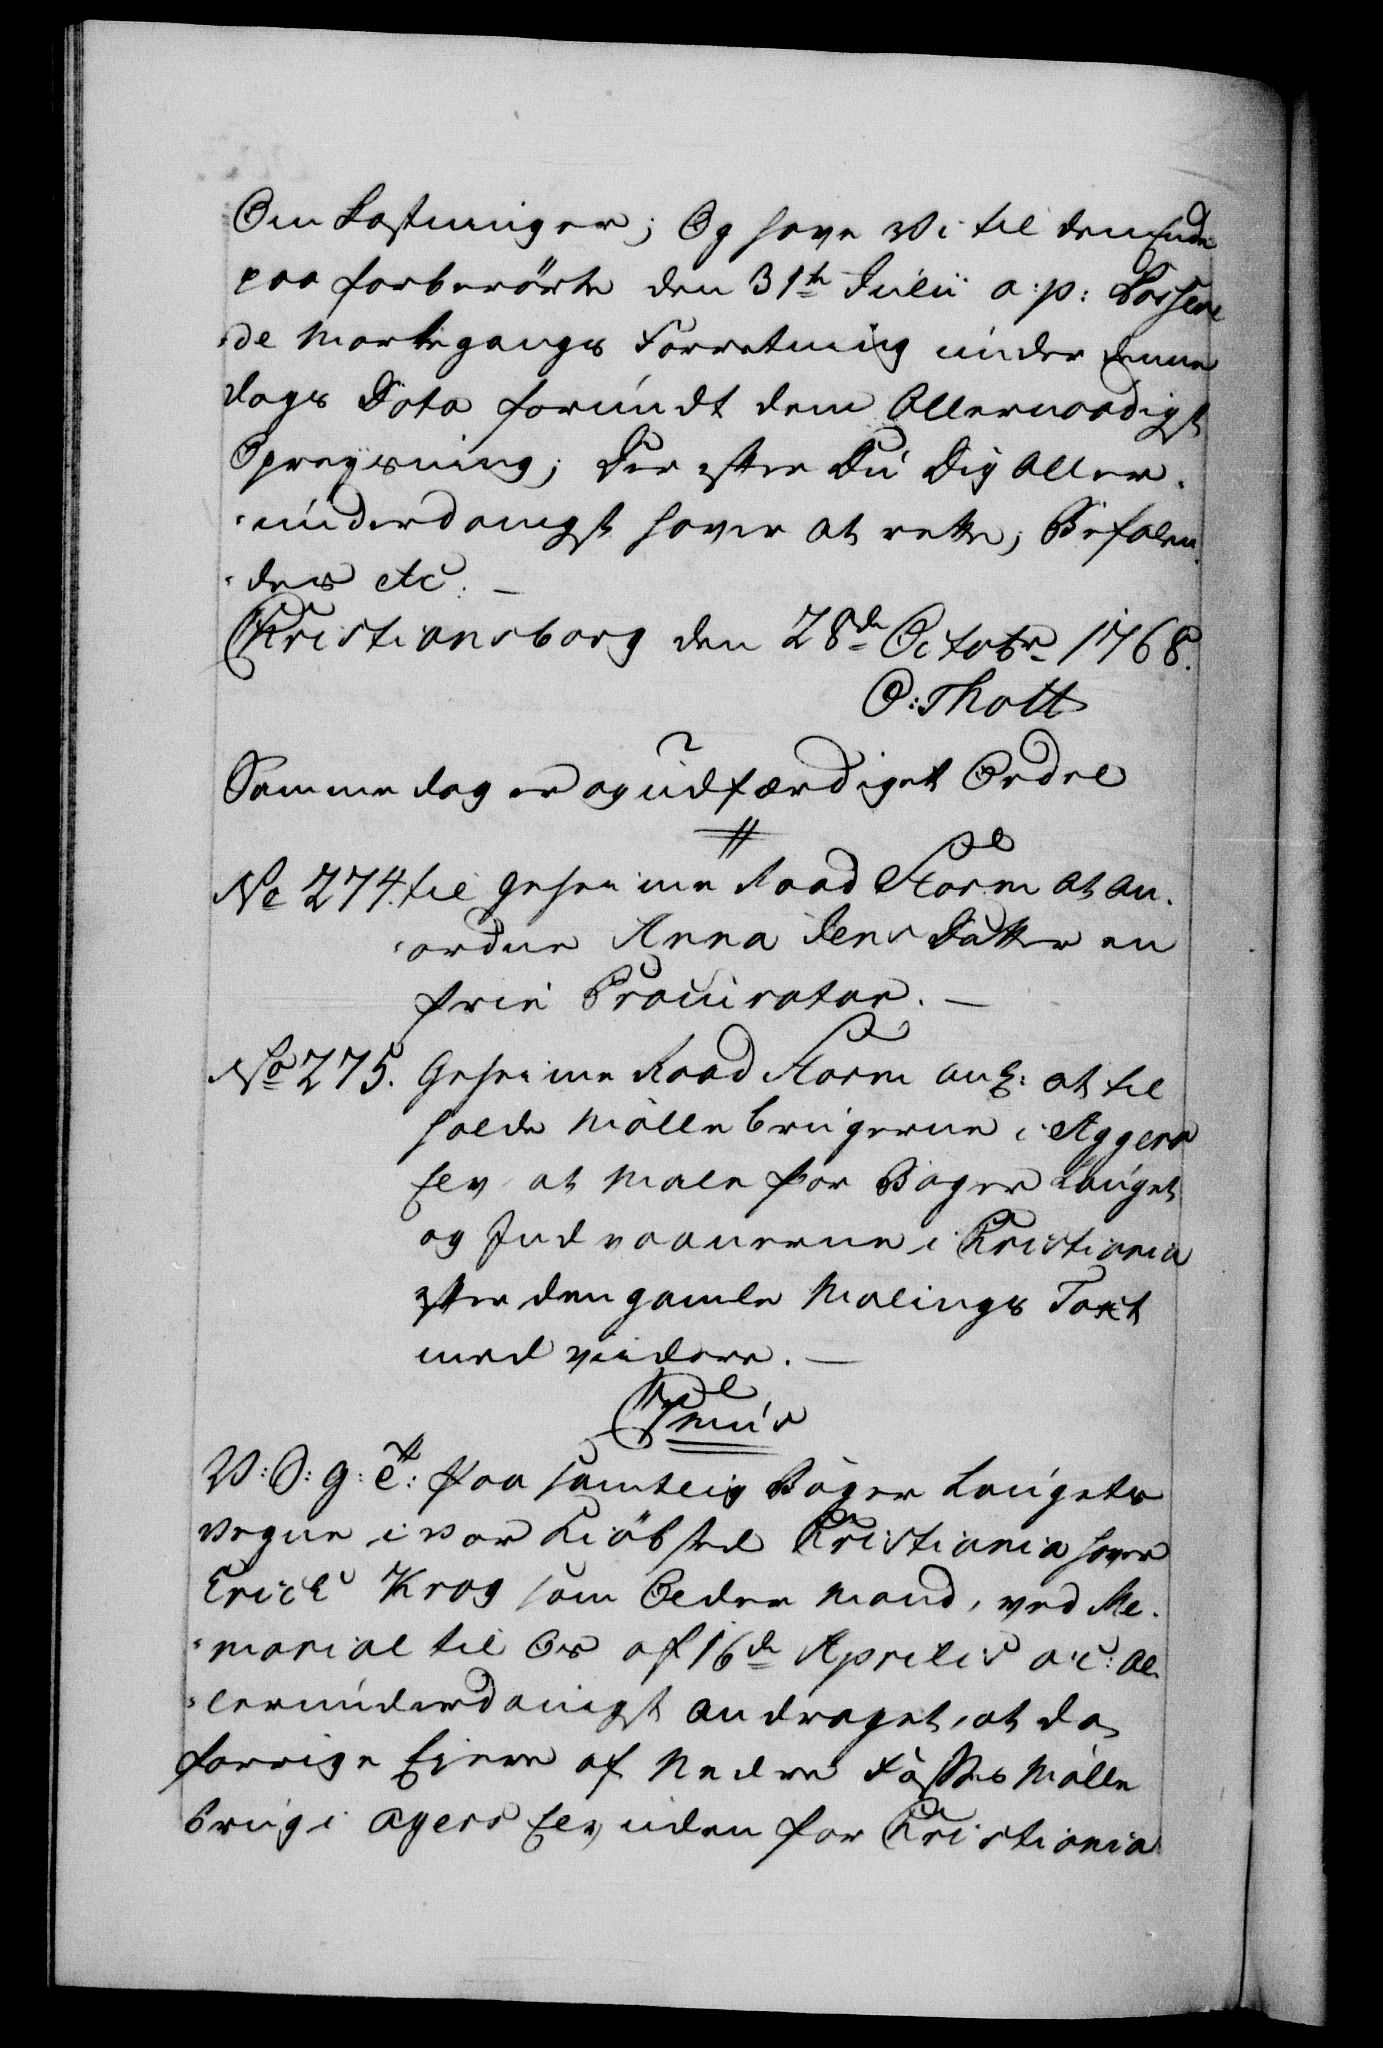 Om Kostninger; Og have Vi til den Ende
paa forberörte den 31te Julii a: p: Passere
de Markegangs Forretning under denne
dags Dato forundt dem Allernaadigst
Opreysning; Der efter Du Dig Aller-
underdanigst haver at rette; Befalen-
des etc. –
Christiansborg den 28de Octobr 1768.
O: Thott
Samme dag er og udfærdiget Ordre
No 274. til Geheime Raad Storm at an-
ordne Anna Jens Datter en
frie Procurator. –
No 275. Geheime Raad Storm ang: at til
holde Mölle brugerne i Aggers
Elv at Male for Bager Lauget
og Indvaanerne i Christiania
efter den gamle Malings Taxt
med viidere. –
Cmus
V: S: G: T: Paa samtlig Bager Laugets
vegne i vor Kiöbsted Christiania haver
Erich Krog som Older Mand, ved Me-
morial til Os af 16de Aprilis a: c: Al-
lerunderdanigst andraget, at da
forrige Ejere af Nedre Fosses Mölle
brug i Agers Elv uden for Christiania